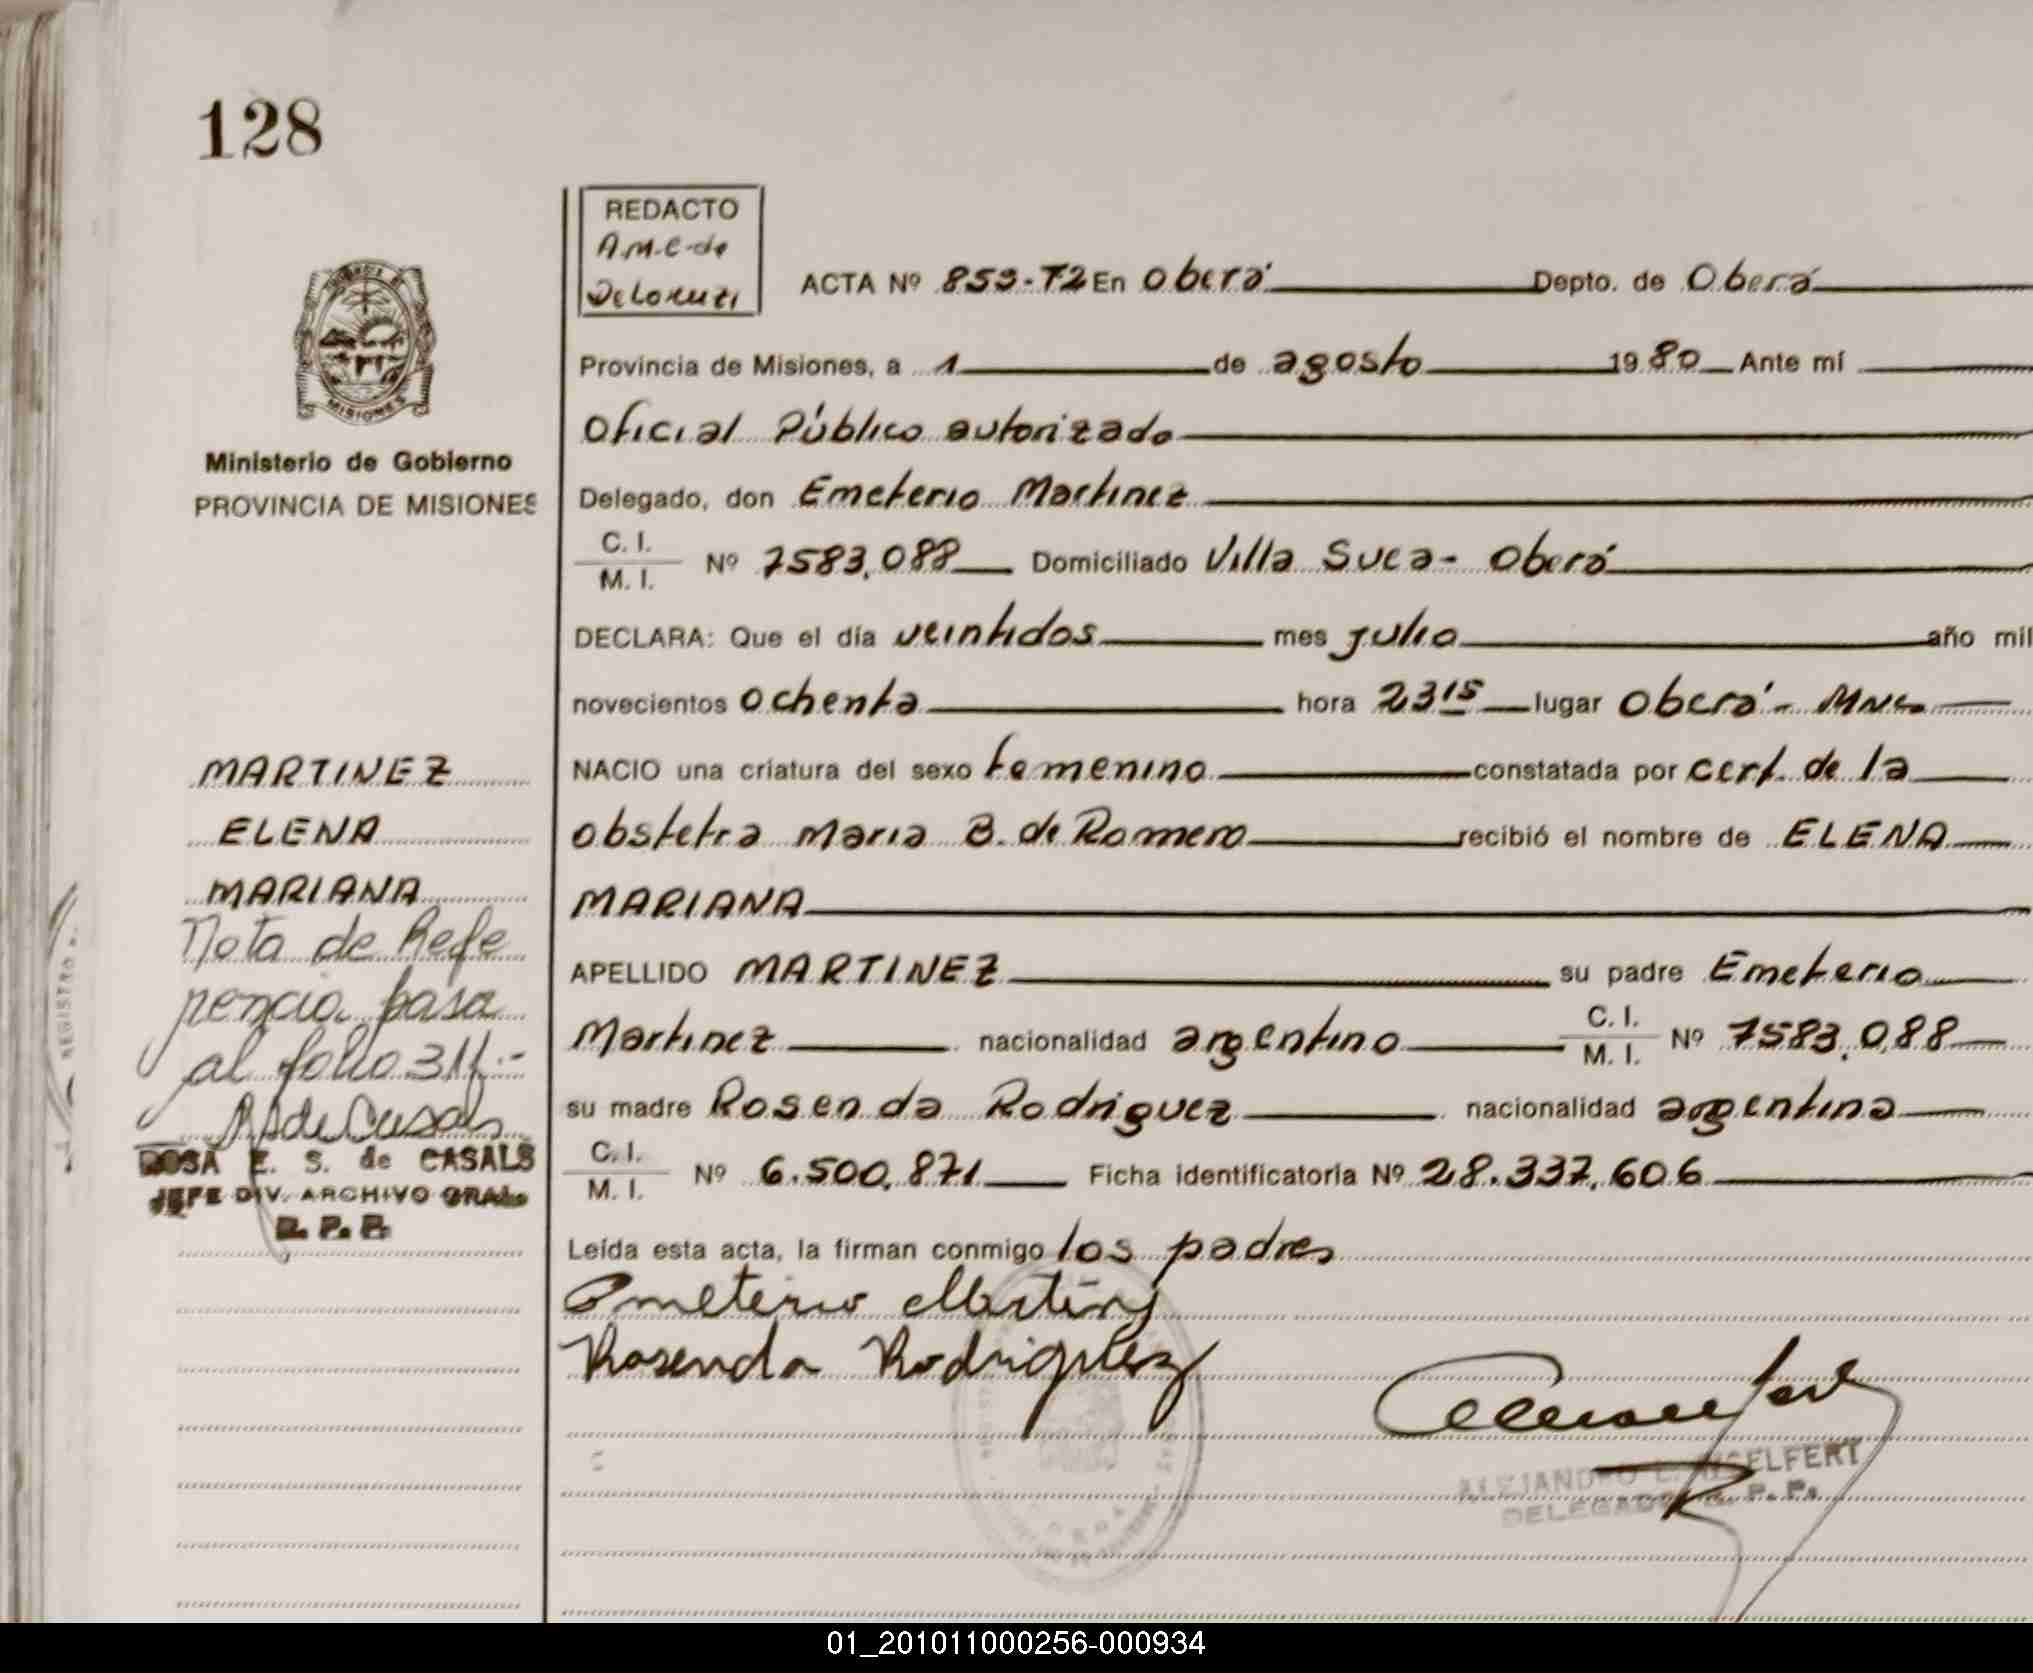 128
REDACTO
A.M.C. de
DeLorenzi
ACTA Nº 859-T2 En Oberá Depto. de Oberá
Provincia de Misiones, a 1 de agosto 1980 Ante mí
Oficial Público autorizado
Ministerio de Gobierno
PROVINCIA DE MISIONES
Delegado, don Emeterio Martinez
C. I.
M. I. Nº 7583.088 Domiciliado Villa Suea - Oberá
DECLARA: Que el día veintidos mes julio año mil
novecientos ochenta hora 23 15 lugar Oberá - Mnes
NACIO una criatura del sexo femenino constatada por cert. de la
obstetra Maria B. de Romero recibió el nombre de ELENA
MARIANA
APELLIDO MARTINEZ su padre Emeterio
Martinez nacionalidad argentino C. I. M. I. Nº 7583.088
su madre Rosenda Rodriguez nacionalidad argentina
C. I.
M. I. Nº 6.500.871 Ficha identificatoria Nº 28.337.606
Leída esta acta, la firman conmigo los padres
Emeterio Martinez
Rosenda Rodriguez
DELEGADO R. P. P.
MARTINEZ
ELENA
MARIANA
Nota de Refe
rencia pasa
al folio 311.-
R S de Casals
ROSA E. S. de CASALS
JEFE DIV. ARCHIVO GRAL.
R. P. P.
MISIONES
REGISTRO
01_201011000256-000934